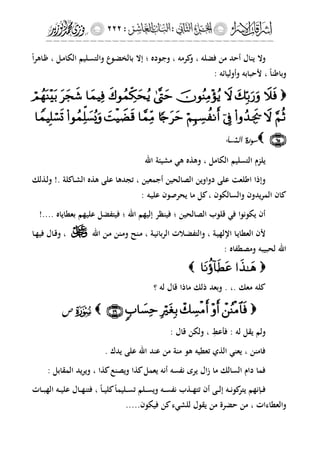 إشراق الإسلام الجنة الثانية : الباب العاشر : ٢٢٢
ولا ينال أحد من فضله ، وكرمه ، وجوده ؛ إلا بالخضوع والتسليم الكامل ، ظاهراً
وباطناً ، لأحبابه وأوليائه :
﴿ فَلَا وَرَبِّكَ لَا يُؤْمِنُونَ حَتَّىٰ يُحَكِّمُوكَ فِيمَا شَجَرَ بَيْنَهُمْ
ثُمَّ لَا يَجِدُوا۟ فِىٓ أَنفُسِهِمْ حَرَجًا مِّمَّا قَضَيْتَ وَيُسَلِّمُوا۟ تَسْلِيمًا
﴿٦٥﴾ سورة النساء
يلزم التسليم الكامل ، وهذه هي مشيئة الله
وإذا اطلعت على دواوين الصالحين أجمعين ، تجدها على هذه الشاكلة .! ولذلك
كان المريدون والسالكون ، كل ما يحرصون عليه :
أن يكونوا في قلوب الصالحين ؛ فينظر إليهم الله ؛ فيتفضل عليهم بعطاياه ....!
لأن العطايا الإلهية ، والتفضلات الربانية ، منح ومنن من الله ﷻ ، وقال فيها
الله لحبيبه ومصطفاه :
﴿ هَـٰذَا عَطَآؤُنَا ﴾
كله معك .،. وبعد ذلك ماذا قال له ؟
﴿ فَٱمْنُنْ أَوْ أَمْسِكْ بِغَيْرِ حِسَابٍ ﴿٣٩﴾ سورة ص
ولم يقل له : فأعطِ ، ولكن قال :
فامنن ، يعني الذي تعطيه هو منة من عند الله على يدك .
فما دام السالك ما زال يرى نفسه أنه يعمل كذا ويصنع كذا ، ويريد المقابل :
فإنهم يتركونه إلى أن تتهذب نفسه ويسلم تسليماً كلياً ، فتنهال عليه الهبات
والعطاءات ، من حضرة من يقول للشيء كن فيكون.....